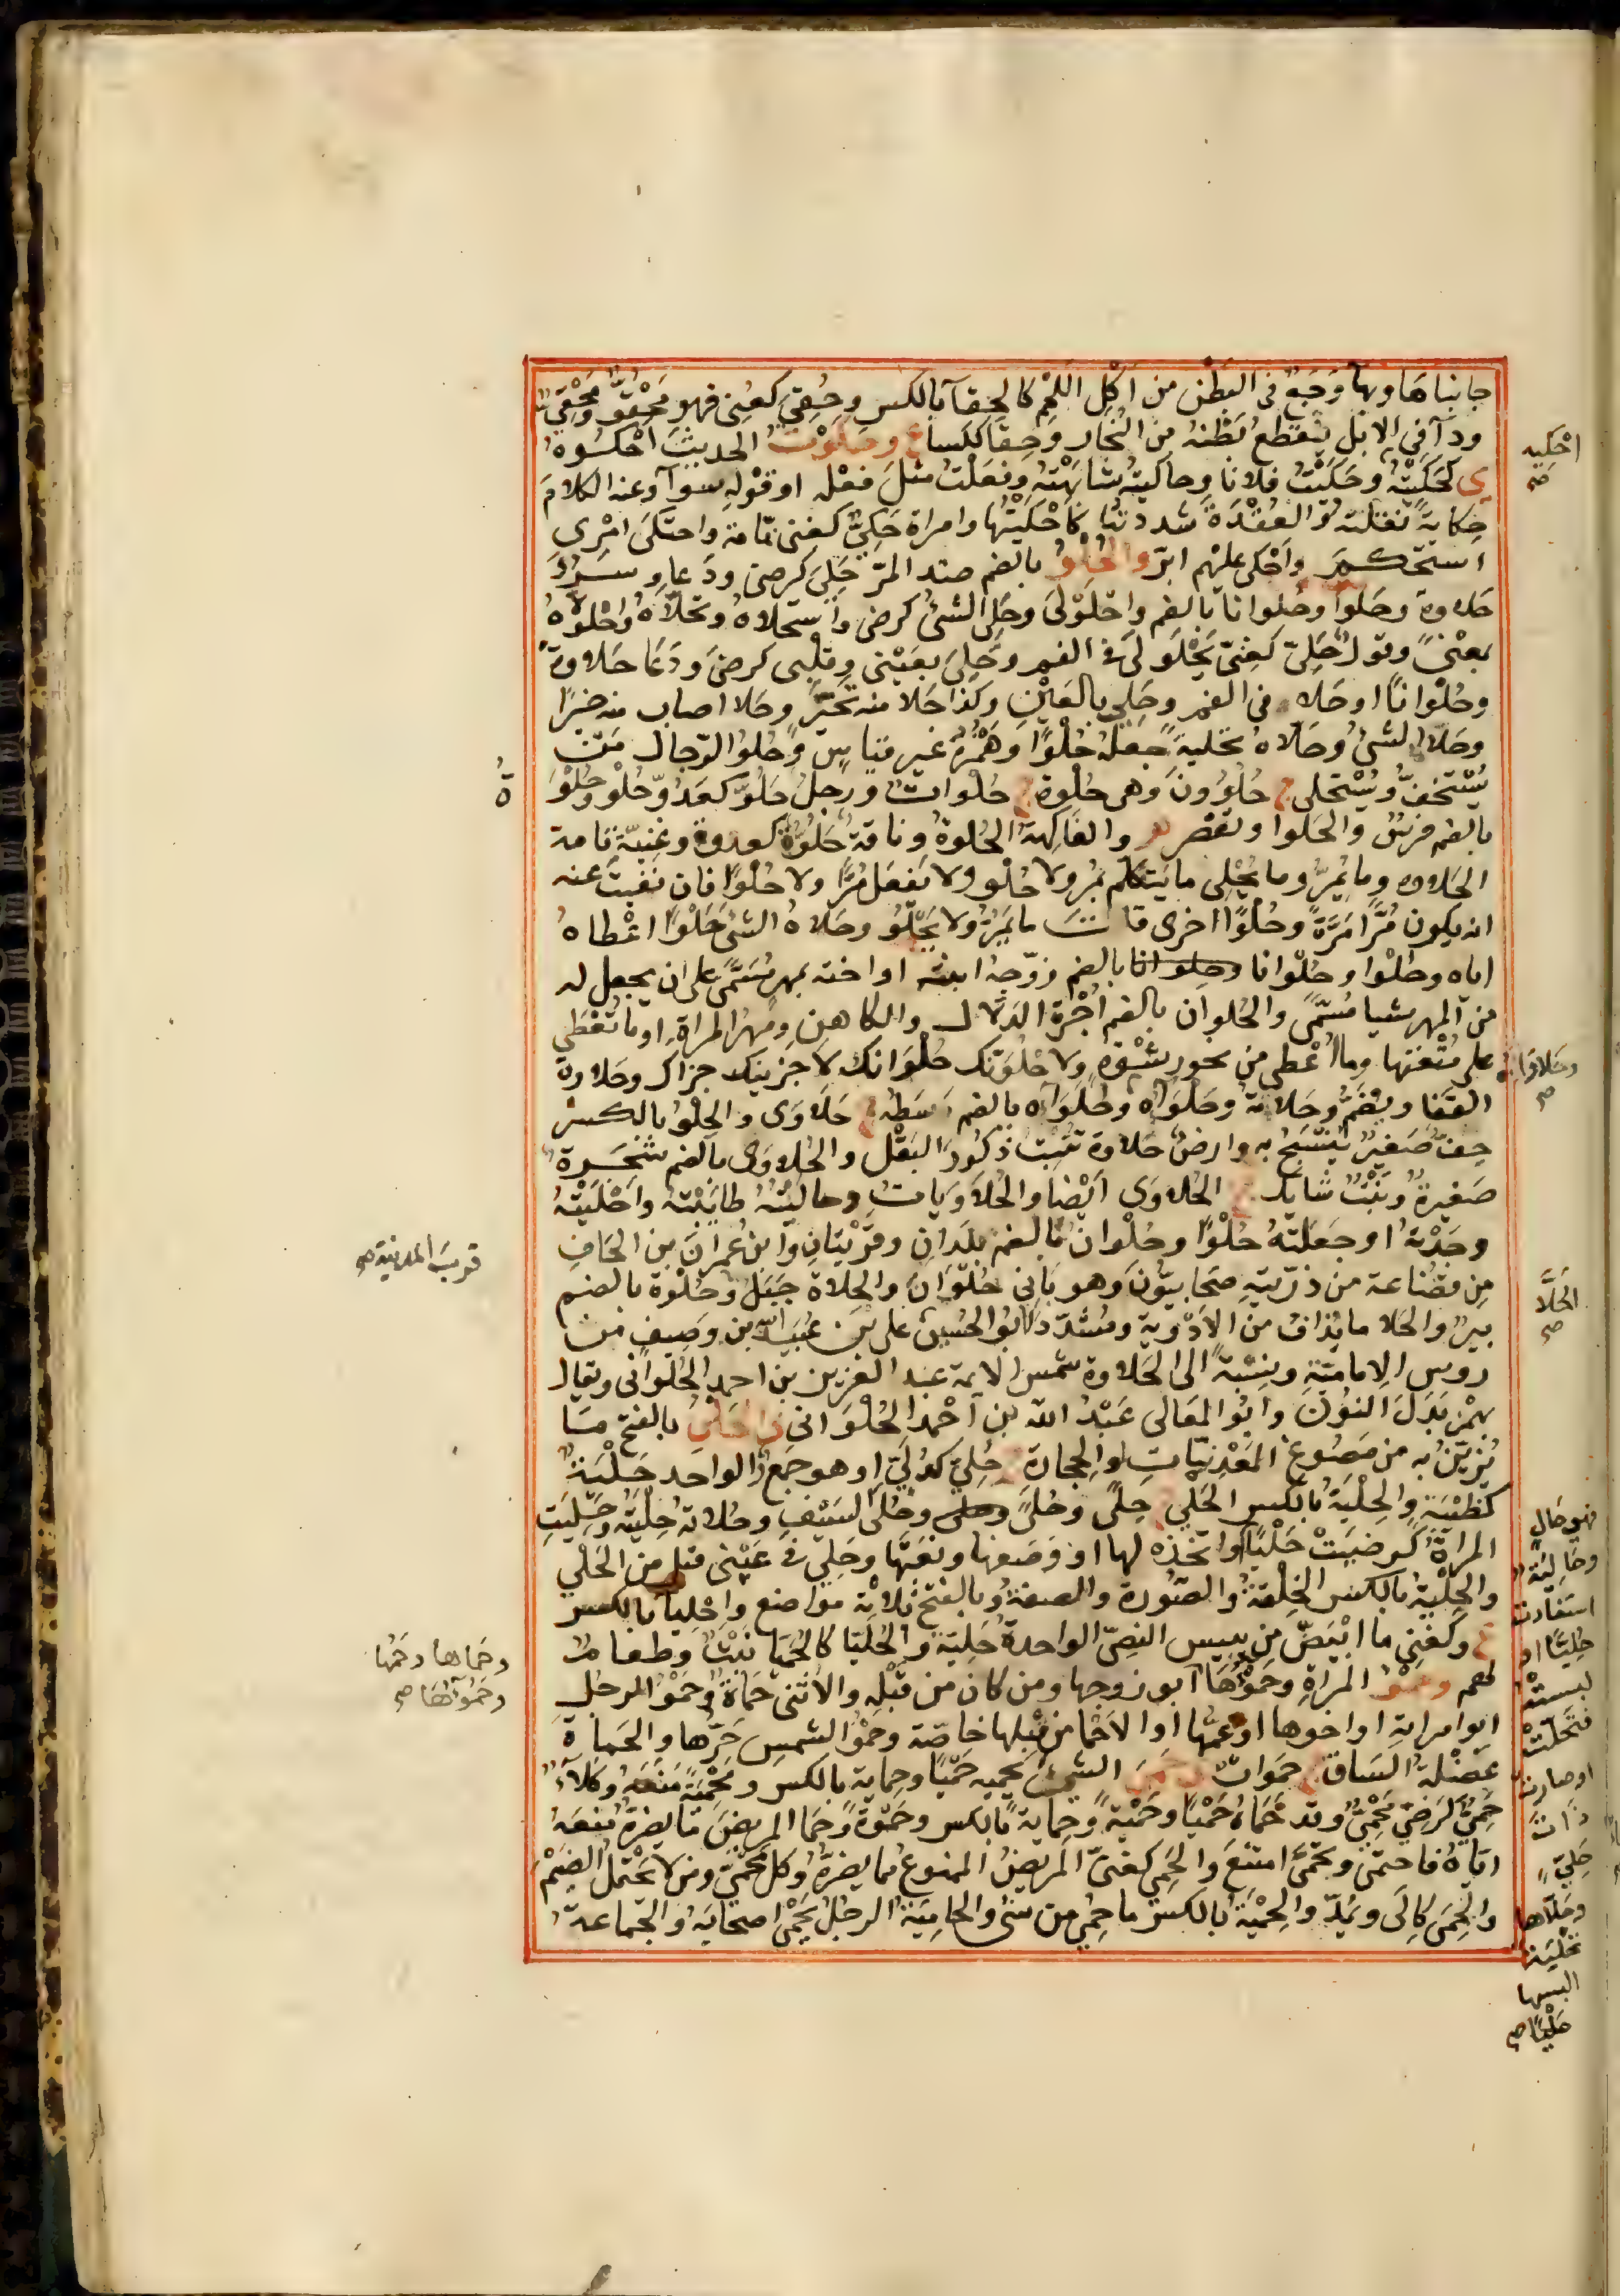 جانباها وبها وَجَعٌ في البَطْن من اكْلِ اللَّحْمِ كالحِقآ بالكسر وحُقِيَ كعُنِى فهو مَحْقُوٌّ ومَحْقِيٌّ
ودآ في الابل يَنْقَطِعُ بَطْنهُ من النُّحاز وحِقَآ ككساء ع وحكَوْتُ الحديثَ احْكُوهُ
ى كحَكَيْتُهُ وحَكَيْتُ فلانا وحاكيتُه شابَهْتُهُ وفعَلْتُ مثلَ فعْلِه او قَوْلِهِ سوآ وعنه الكلامَ
حِكايةً نقلتُه والعُقْدَةَ شددتُها كاحْكَيْتُها وامراة حَكِيٌّ كغنى نمّامة واحتكَى امْرِى
استحكم واَحْكى عليْهم ابرّ والحُلْوُ بالضم ضد المرّ حَلِىَ كرضى ودَعا وسَرُوَ
حَلاوةً وحَلوًا وحُلوانا بالضم واحْلَوْلَى وحَلِىَ الشىُ كرضى واستحلاهُ وتحلاّهُ واحْلولاهُ
بمعْنىً وقول حَلِىّ كغنىّ يَحْلَولى فى الفم وحَلِىَ بعَيْنى وقلْبى كرضىَ ودَعَا حَلاوةً
وحُلْوانًا او حَلا فى الفم وحَلِى بالعَيْنِ وكذا حَلا منه بخَيْرٍ وحَلا اصاب منه خيرًا
وحَلاّ الشىُ وحَلاّه تحليةً جعلهُ حُلْوًا وهَمْزُهُ غير قياسٍ وحُلوُ الرّجال مَن
يُسْتخفّ ويُسْتحلى ج حُلْوُونَ وهى حُلْوَةٌ ج حُلْوات ورجلٌ حَلُوٌّ كعَدُوّ وحُلْوٌ وحُلْوَةُ
بالضم فرسٌ والحَلوا ويقصر م والفاكِهةُ الحُلوةُ وناقةٌ حَلُوّةٌ كعدوة وغنيّةٍ تامة
الحَلاوه وما يُمِرُّ وما يُحْلِى ما يَتكلّم بمُرّ ولا حُلْو ولا يَفعَل مُرًّا ولا حُلْوًا فان نفيتَ عنه
انه يكون مُرًّا مَرَّةً وحُلْوًا اخرى قلتَ ما يَمَرُّ ولا يَحْلُو وحَلاهُ الشىَ حَلْوًا اعْطاهُ
اياه وحَلْوا وحُلْوانا بالضم زوّجهُ ابنته او اخته بمهرٍ مُسَمًّى على ان يجعل له
من المهر شيا مُسَمًّى والحُلوان بالضم اُجْرَة الدَلاّل والكاهنِ ومَهرُ المراةِ او ما تُعْطَى
على مُتْعَتها وما اُعْطى من نحوِ رِشْوَةٍ ولاحْلُوَنّك حُلْوَانك لاجزينك جزاك وحَلاوة
القَفا ويُضَمّ وحَلاته وحَلْوَاه وحَلاوآه بالضم وسَطه ج حَلاوَى والحِلْوُ بالكسر
حِفٌّ صَغيرٌ يُنْسَجُ به وارضٌ حَلاوة تُنْبت ذكُورَ البَقْل والحُلاوَى بالضم شجَرةٌ
صَغيرةٌ ونَبْتٌ شايك ج الحُلاوَى ايْضا والحُلاَوَيات وحاليتُهُ طايَبْتهُ واحْلَيْتُهُ
وجَدْتهُ او جعَلتهُ حُلْوًا وحُلْوان بالضم بلدانِ وقَرْيتانِ وابنُ عُمرانَ بن الحَافِ
مِن قضاعة من ذرّيته صَحابيّونَ وهو بَانى حُلْوَانَ والحِلاة جَبَلٌ وحُلْوة بالضم
بيرٌ والحَلا ما يُذافُ من الاَدْوية ومُشدّد ابُو الحُسين على بن عُبَيد الله بن وصيفٍ من
روس الامامِيّةِ ونِسْبةً الى الحَلاوة شمس الايمة عبد العزيز بن احمد الحُلوانى ويقال
بهمْز بَدَل النوُن وابُو المَعَالى عَبْدُ الله بن احْمد الحُلْوَانى ى الحَلْىُ بالفتح ما
يُزيّنُ به من مَصُوغ المَعْدِنيّاتِ او الحجارةِ ج حُلِىّ كدُلِىّ او هو جَمعٌ والواحد حَلْيةٌ
كظبْيَةٍ والحِلْيةُ بالكسر الحَلْى ج حِلًى وحُلًى وحَلْى السَيْفِ وحَلاته حِلْيَتهُ وحَلِيَتِ
المراةُ كرضيَتْ حَلْيًا واتخذه لها او وصَفها ونعَتَها وحَلِىَ فى عَيْنى قيل من الحَلْى
والحِلْيةُ بالكسر الخِلقةُ والصُورة والصفةُ وبالفتح ثلاثة مواضع واِحْليا بالكسر
ع وكَغنى ما ابْيَضّ من يبيس النصِىّ الواحدةُ حَليّةٌ والحُليّا كالحُميّا نَبْتٌ وطعامٌ
لهم وحَمْوُ المَراةِ وحَمُوْهَا ابو زوجها ومن كان من قبَلِه والانثى حَمَاةٌ وحَمْوُ الرجُل
ابو امراتِه او اخوها او عمّها او الاَحْما من قِبلها خاصّة وحَمْوُ الشمسِ حَرّها والحَماة
عَضَلةُ السَاق ج حَمَوات ى حَمَى الشىَ يَحْميه حَمْيًا وحِماية بالكسر ومَحْمِيَةً مَنَعَهُ وكَلأٌ
حِمًى كَرِضًى مَحْمِىٌّ وقد حَمَاهُ حَمْيًا وحَمْيَةً وحِمايةً بالكسر وحَمْوَةً وحَمَا المريضَ مَا يضرّهُ مَنَعَهُ
ايّاهُ فاحتمَى وتحمَّى امتنَعَ والحَمِى كغنىّ المريضُ الممنوعُ مما يضرّهُ وكل مَحْمِىّ ومن لا يَحْتمِلُ الضَيْمَ
والحِمَى كاِلَى ويُمدّ والحِمْيَةُ بالكسر ما حُمِىَ من شى والحامِيَةُ الرجُلُ يَحْمِى اصحابَه والجَماعةُ
احْكيه
صح
ةُ
وحَلاوَا
صح
قربَ المدينة صح
الحَلّا
صح
فهو حَالٍ
وحاليَة
استفادت
حَلْيًا او
لبسته
فتحلّت
او صارت
ذاتَ
حَلْىٍ
وحَلاّها
تحْليَة
البسها
حَلْيًا صح
وحَماها وحَمُها
وحَمْوُها صح